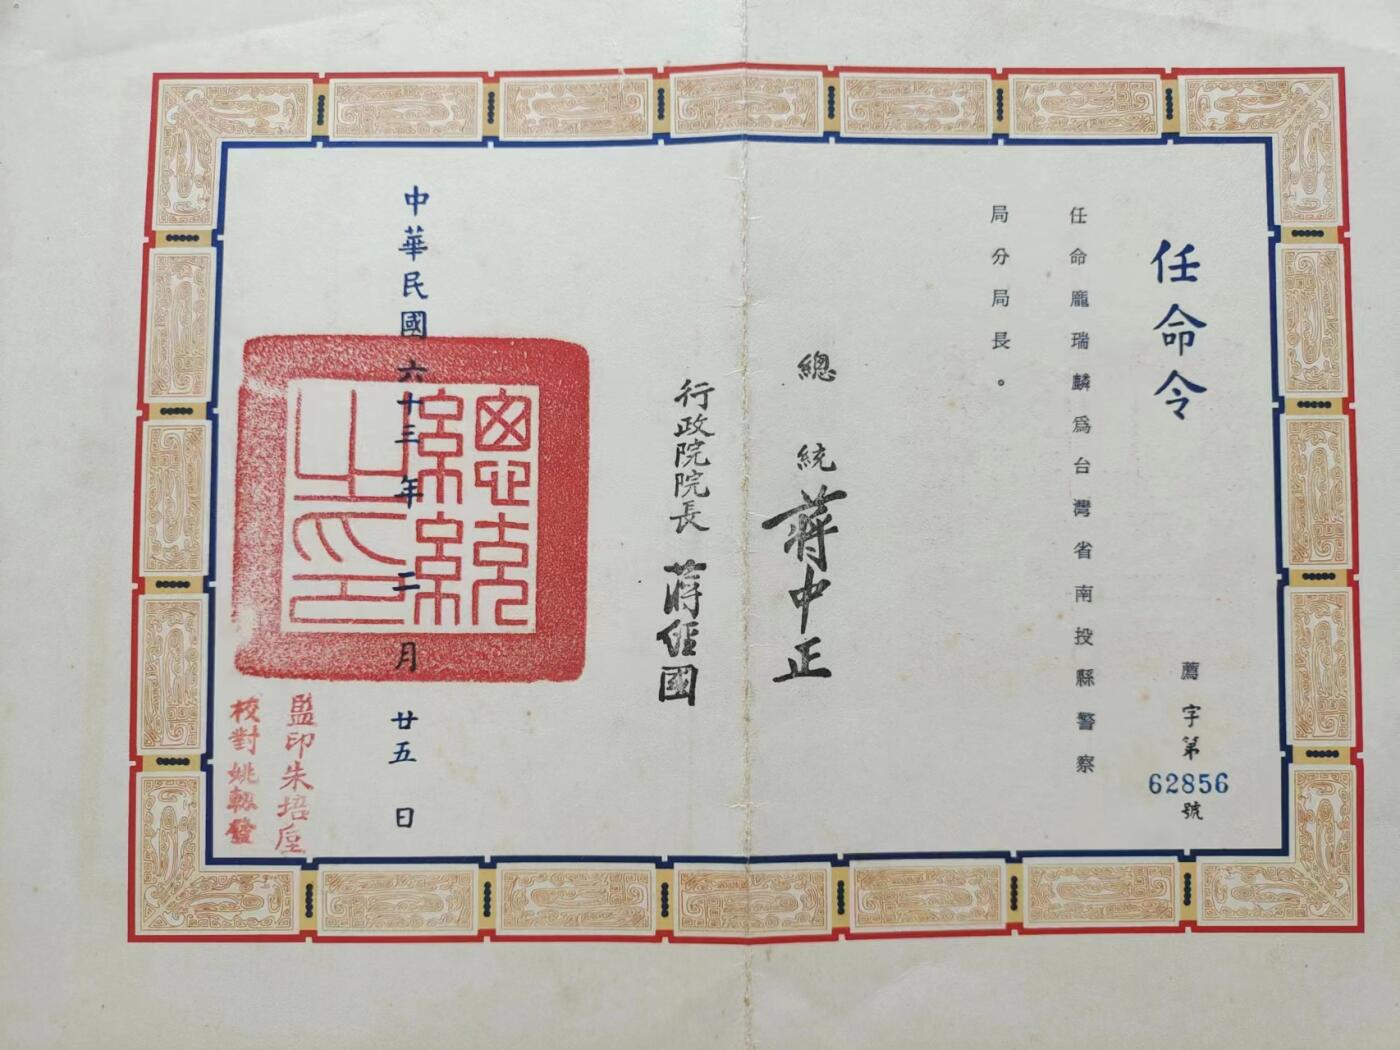 任命令
薦字第62856號
任命龐瑞麟為台灣省南投縣警察
局分局長。
總統 蔣中正
行政院院長 蔣經國
中華民國六十三年二月廿五日
總統之印
監印朱培垕
校對姚軔發